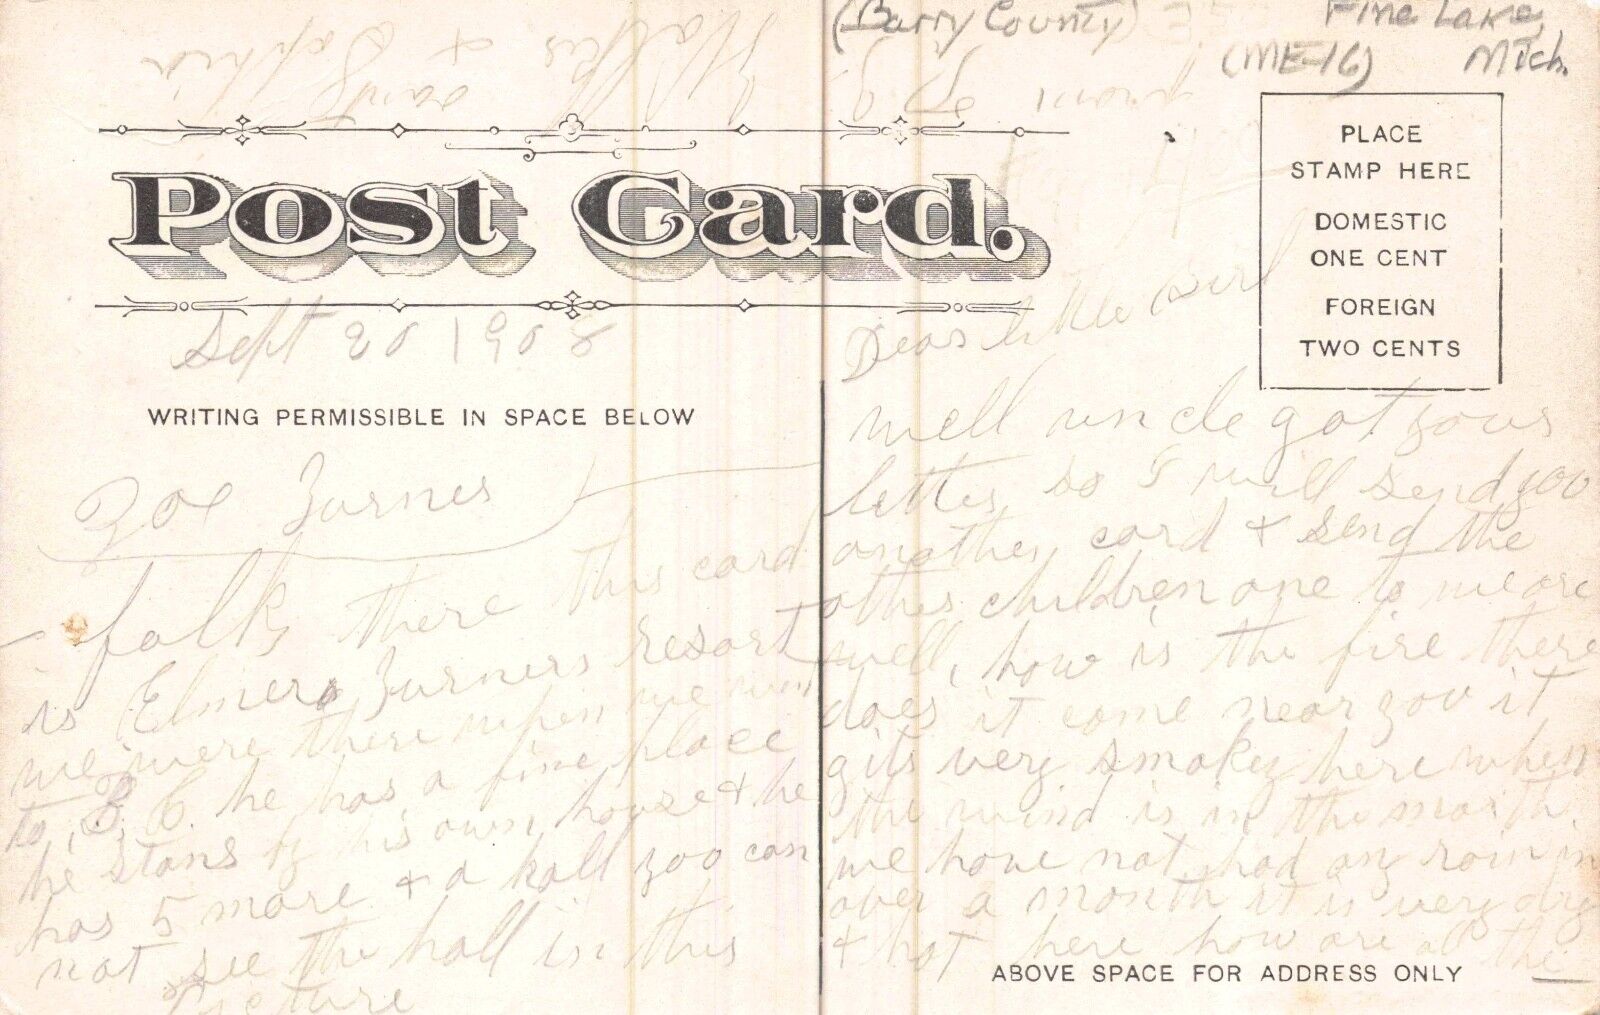 (Barry County) Fine Lake,
(ME-16) Mich.
from
Walter & Sophia
Post Card.
PLACE
STAMP HERE
DOMESTIC
ONE CENT
FOREIGN
TWO CENTS
Sept 20 1908
WRITING PERMISSIBLE IN SPACE BELOW
Dear little Girl
well uncle got your
letter so I will send you
another card & send the
other children one to we are
well, how is the fire there
does it come near you it
gits very smokey here when
the wind is in the north.
we have not had any rain in
over a month it is very dry
& hot here how are all the
Zoe Zurnes
folks there this card
is Elmer Zurners resort
we were there when we went
to B, C. he has a fine place
he stans by his own house & he
has 5 more & a hall you can
not see the hall in this
picture
ABOVE SPACE FOR ADDRESS ONLY